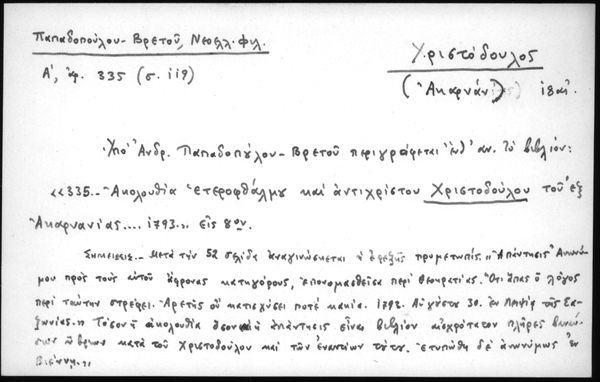 Παπαδοπούλου-Βρετοῦ, Νεοελλ. φιλ.
Α', ἀρ. 335 (σ. 119)
Χριστόδουλος
(Ἀκαρνάν) 18 αἰ.
Ὑπὸ Ἀνδρ. Παπαδοπούλου-Βρετοῦ περιγράφεται ἐνθ' ἀν. τὸ βιβλίον:
«335.- Ἀκολουθία ἑτεροφθάλμου καὶ ἀντιχρίστου Χριστοδούλου τοῦ ἐξ
Ἀκαρνανίας.... 1793.» εἰς 8ον.
Σημείωσις.- Μετὰ τὴν 52 σελίδα ἀναγινώσκεται ὁ ἐφεξῆς προμετωπίς. «Ἀπάντησις Ἀνωνύ-
μου πρὸς τοὺς αὐτοῦ ἄφρονας κατηγόρους, ἐπονομασθεῖσα περὶ Θεοκρατίας. Ὅτι ἅπας ὁ λόγος
περὶ ταύτην στρέφει. Ἀρετῆς οὐ κατισχύσει ποτὲ κακία. 1793. Αὐγούστου 30. ἐν Λειψίᾳ τῆς Σα-
ξωνίας.» Τόσον ἡ ἀκολουθία ὅσον καὶ ἡ ἀπάντησις εἶναι βιβλίον αἰσχρότατον πλῆρες βαναύ-
σων ὕβρεων κατὰ τοῦ Χριστοδούλου καὶ τῶν ἐναντίων τούτου. Ἐτυπώθη δὲ ἀνωνύμως ἐν
Βιέννῃ.»